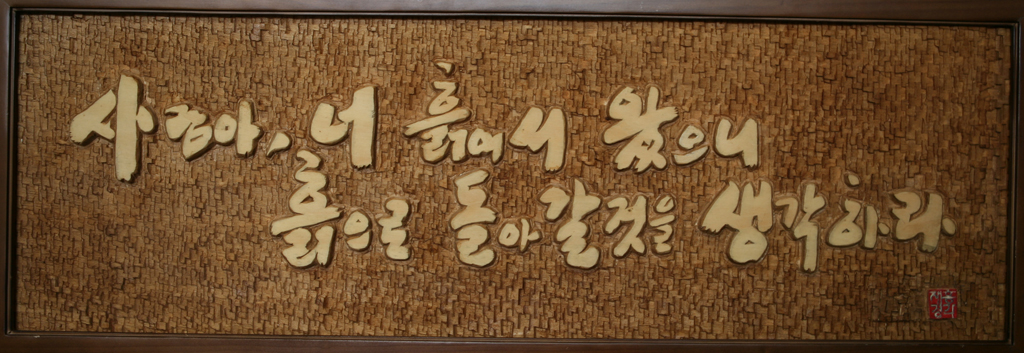 사람아, 너 흙에서 왔으니
흙으로 돌아갈것을 생각하라